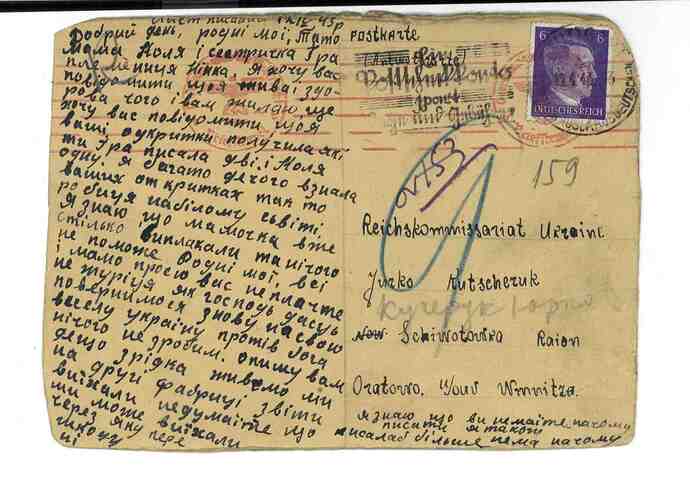 Лист писаний 1 IV 43р
Добрий день, родні мої, Тато
Мама Ноля і сестричка Гра
племниця Нінка. Я хочу вас
повідомити що я жива і здо-
рова чого і вам желаю ще
хочу вас повідомити що я
ваші одкритки получила які
ти Гра писала дві і Ноля
одну я багато дечого взнала
ваших открытках так то
робиця на білому сьвіті,
Я знаю що мамочка вже
стілько виплакали та нічого
не поможе Родні мої, всі
і мамо прошу вас не плачте
не журіця як господь дасць
повернимося знову на свою
веселу україну протів бога
нічого не зробим. опишу вам
дещо зрідка живемо ми
на другі фабриці звіти
виїхали недумайте що
ми може виїхали
через яку пере
Postkarte
6
6
DEUTSCHES REICH
159
Reichskommissariat Ukraine
Jurko Kutscheruk
Кучерук Юрко
Schiwotowka Raion
Oratowo,
я знаю що ви не маїте на чому
писати я також
писалаб більше нема на чому